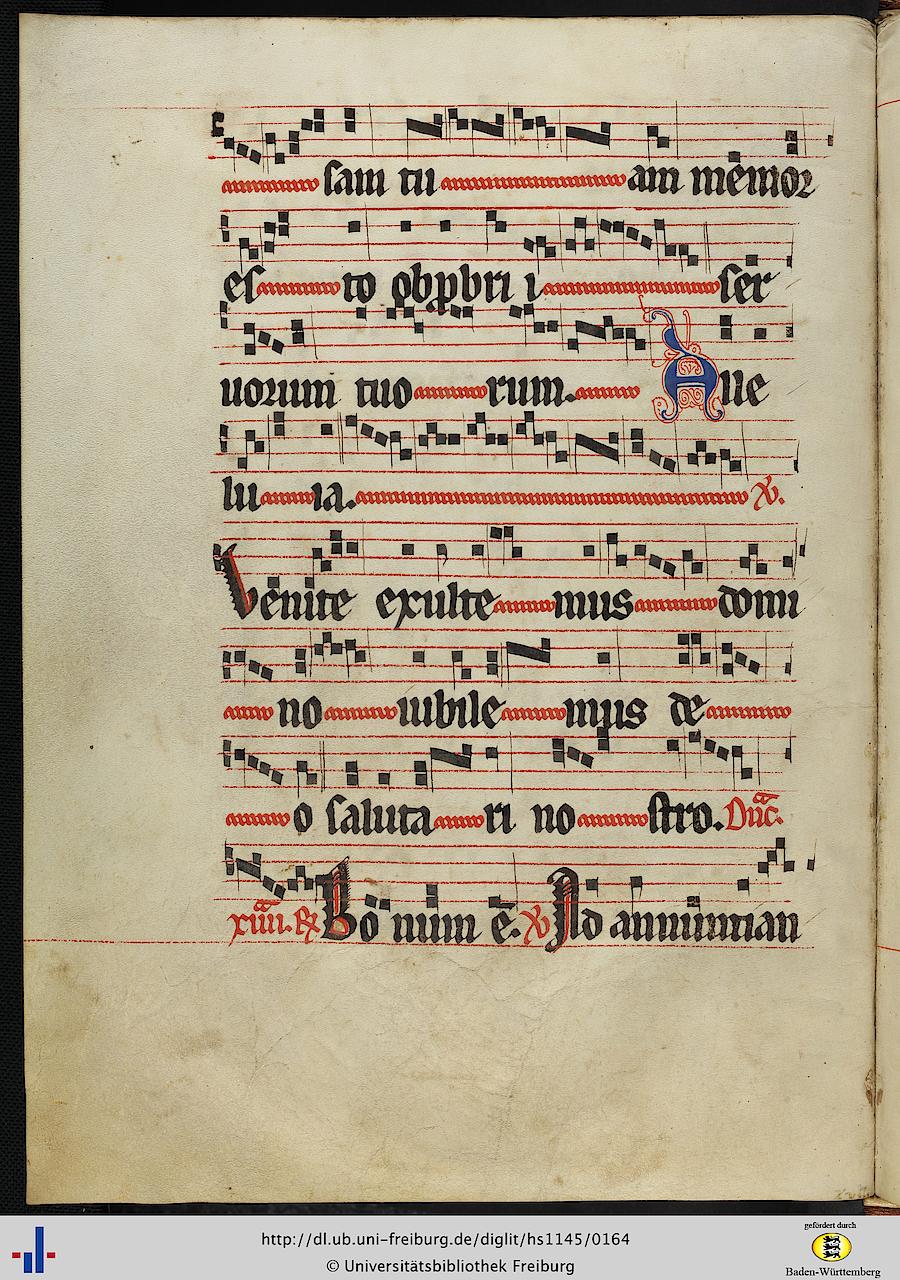 sam tu am memor
es to obpbri i ser
uorum tuo rum. Alle
lu ia. V.
Venite exulte mus domi
no iubile mus de
o saluta ri no stro. Dnc.
xiiii. R Bo num e. V Ad annuntian
http://dl.ub.uni-freiburg.de/diglit/hs1145/0164
© Universitätsbibliothek Freiburg
gefördert durch
Baden-Württemberg